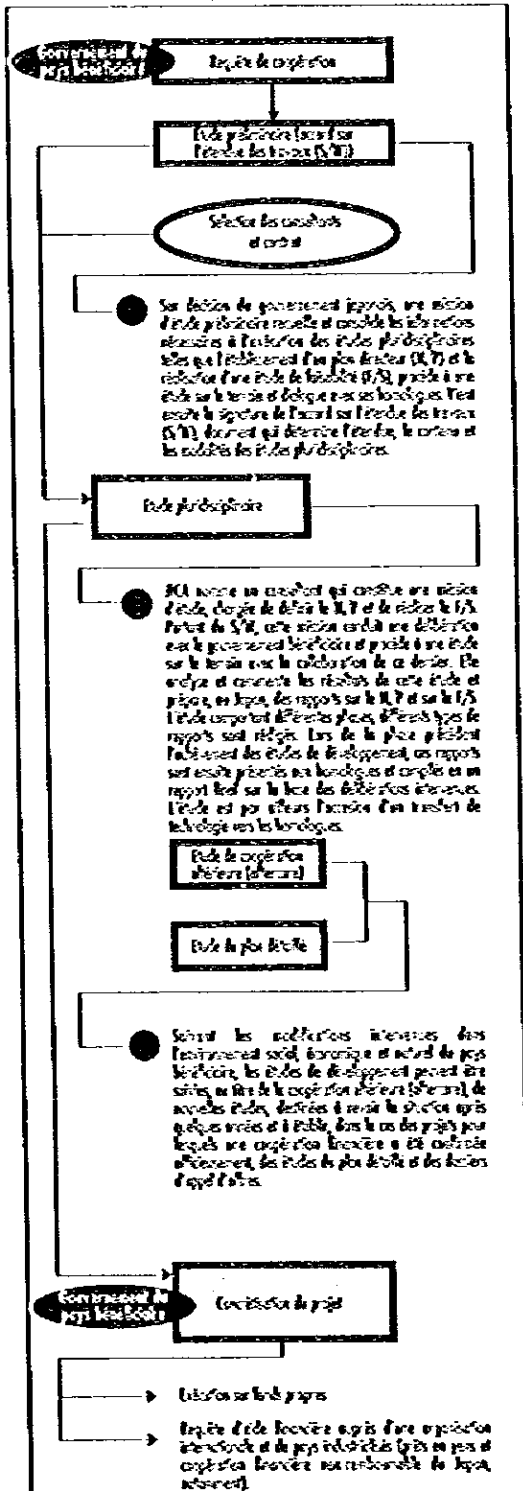 Gouvernement du
pays bénéficiaire
Requête de coopération
Etude préliminaire (accord sur
l'étendue des travaux (S/W))
Sélection des consultants
et contrat
Sur décision du gouvernement japonais, une mission
d'étude préliminaire recueille et consolide les informations
nécessaires à l'exécution des études pluridisciplinaires
telles que l'établissement d'un plan directeur (M/P) et la
réalisation d'une étude de faisabilité (F/S), procède à une
étude sur le terrain et dialogue avec ses homologues. Vient
ensuite la signature de l'accord sur l'étendue des travaux
(S/W), document qui détermine l'étendue, le contenu et
les modalités des études pluridisciplinaires.
Etude pluridisciplinaire
JICA nomme un consultant qui constitue une mission
d'étude, chargée de définir le M/P et de réaliser le F/S.
Partant du S/W, cette mission conduit une délibération
avec le gouvernement bénéficiaire et procède à une étude
sur le terrain avec la collaboration de ce dernier. Elle
analyse et commente les résultats de cette étude et
prépare, au Japon, des rapports sur le M/P et sur le F/S.
L'étude comportant différentes phases, différents types de
rapports sont rédigés. Lors de la phase précédant
l'achèvement des études de développement, ces rapports
sont ensuite présentés aux homologues et compilés en un
rapport final sur la base des délibérations intervenues.
L'étude est par ailleurs l'occasion d'un transfert de
technologie vers les homologues.
Etude de coopération
ultérieure (aftercare)
Etude du plan détaillé
Suivant les modifications intervenues dans
l'environnement social, économique et naturel du pays
bénéficiaire, les études de développement peuvent être
suivies, au titre de la coopération ultérieure (aftercare), de
nouvelles études, destinées à revoir la situation après
quelques années et à établir, dans le cas des projets pour
lesquels une coopération financière a été confirmée
officieusement, des études du plan détaillé et des dossiers
d'appel d'offres.
Gouvernement du
pays bénéficiaire
Concrétisation du projet
Exécution sur fonds propres
Requête d'aide financière auprès d'une organisation
internationale et de pays industrialisés (prêts en yens et
coopération financière non-remboursable du Japon,
notamment).